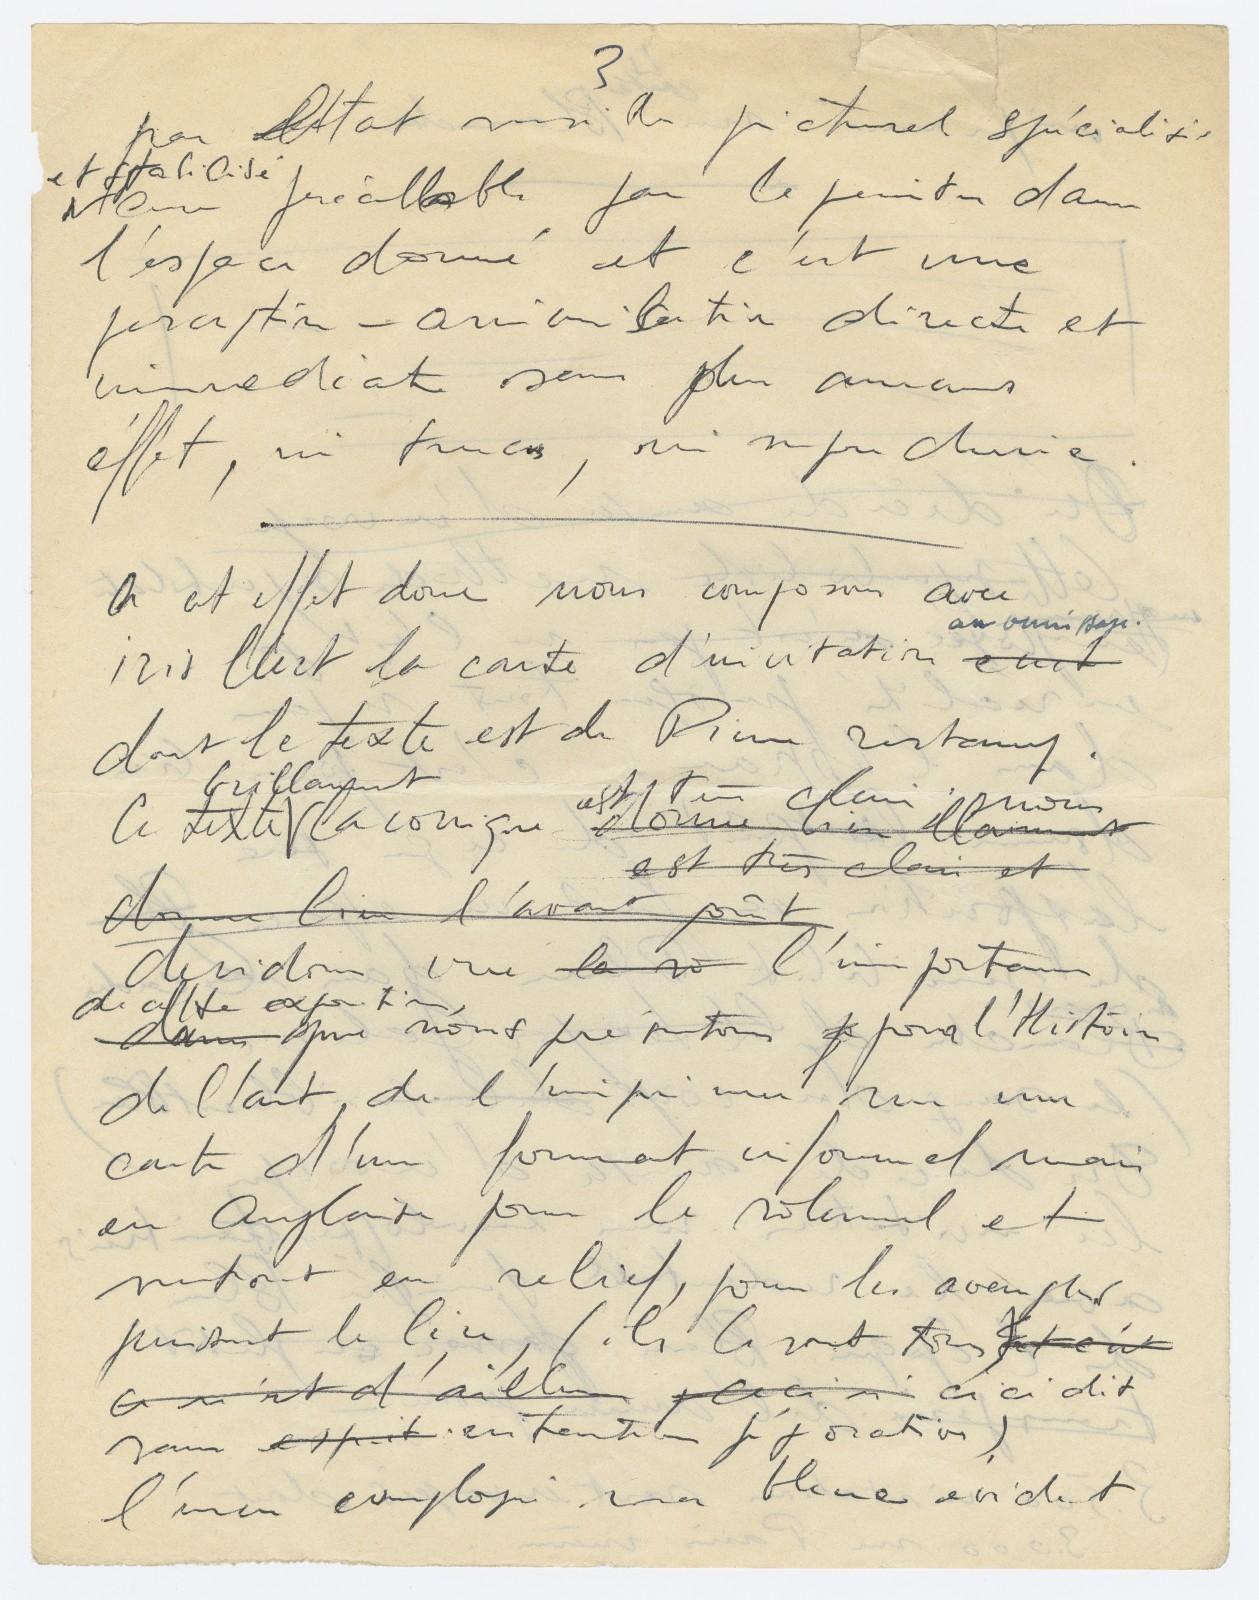 3
par l'état sensible pictural spécialisé
et stabilisé
au préalable par le peintre dans
l'espace donné et c'est une
perception – assimilation directe et
immediate sans plus aucuns
éffet, ni trucs, ni supercherie.
A cet effet donc nous composons avec
au vernissage.
iris Clert la carte d'invitation
dont le texte est de Pierre restany.
brillamment
Ce texte laconique est très clair. nous
donne bien
est très clair et
donne bien l'avant goût
desidons vue la l'importance
de cette exposition
dans que nous présentons pour l'Histoire
de l'art, de l'imprimer sur une
carte d'un format informel mais
en Anglaise pour le solennel et
surtout en relief, pour les aveugles
puissent le lire, (ils le sont tous et c'est
ce n'est d'ailleurs ceci ci dit
sans esprit intention péjorative)
l'encre employé sera bleue évident